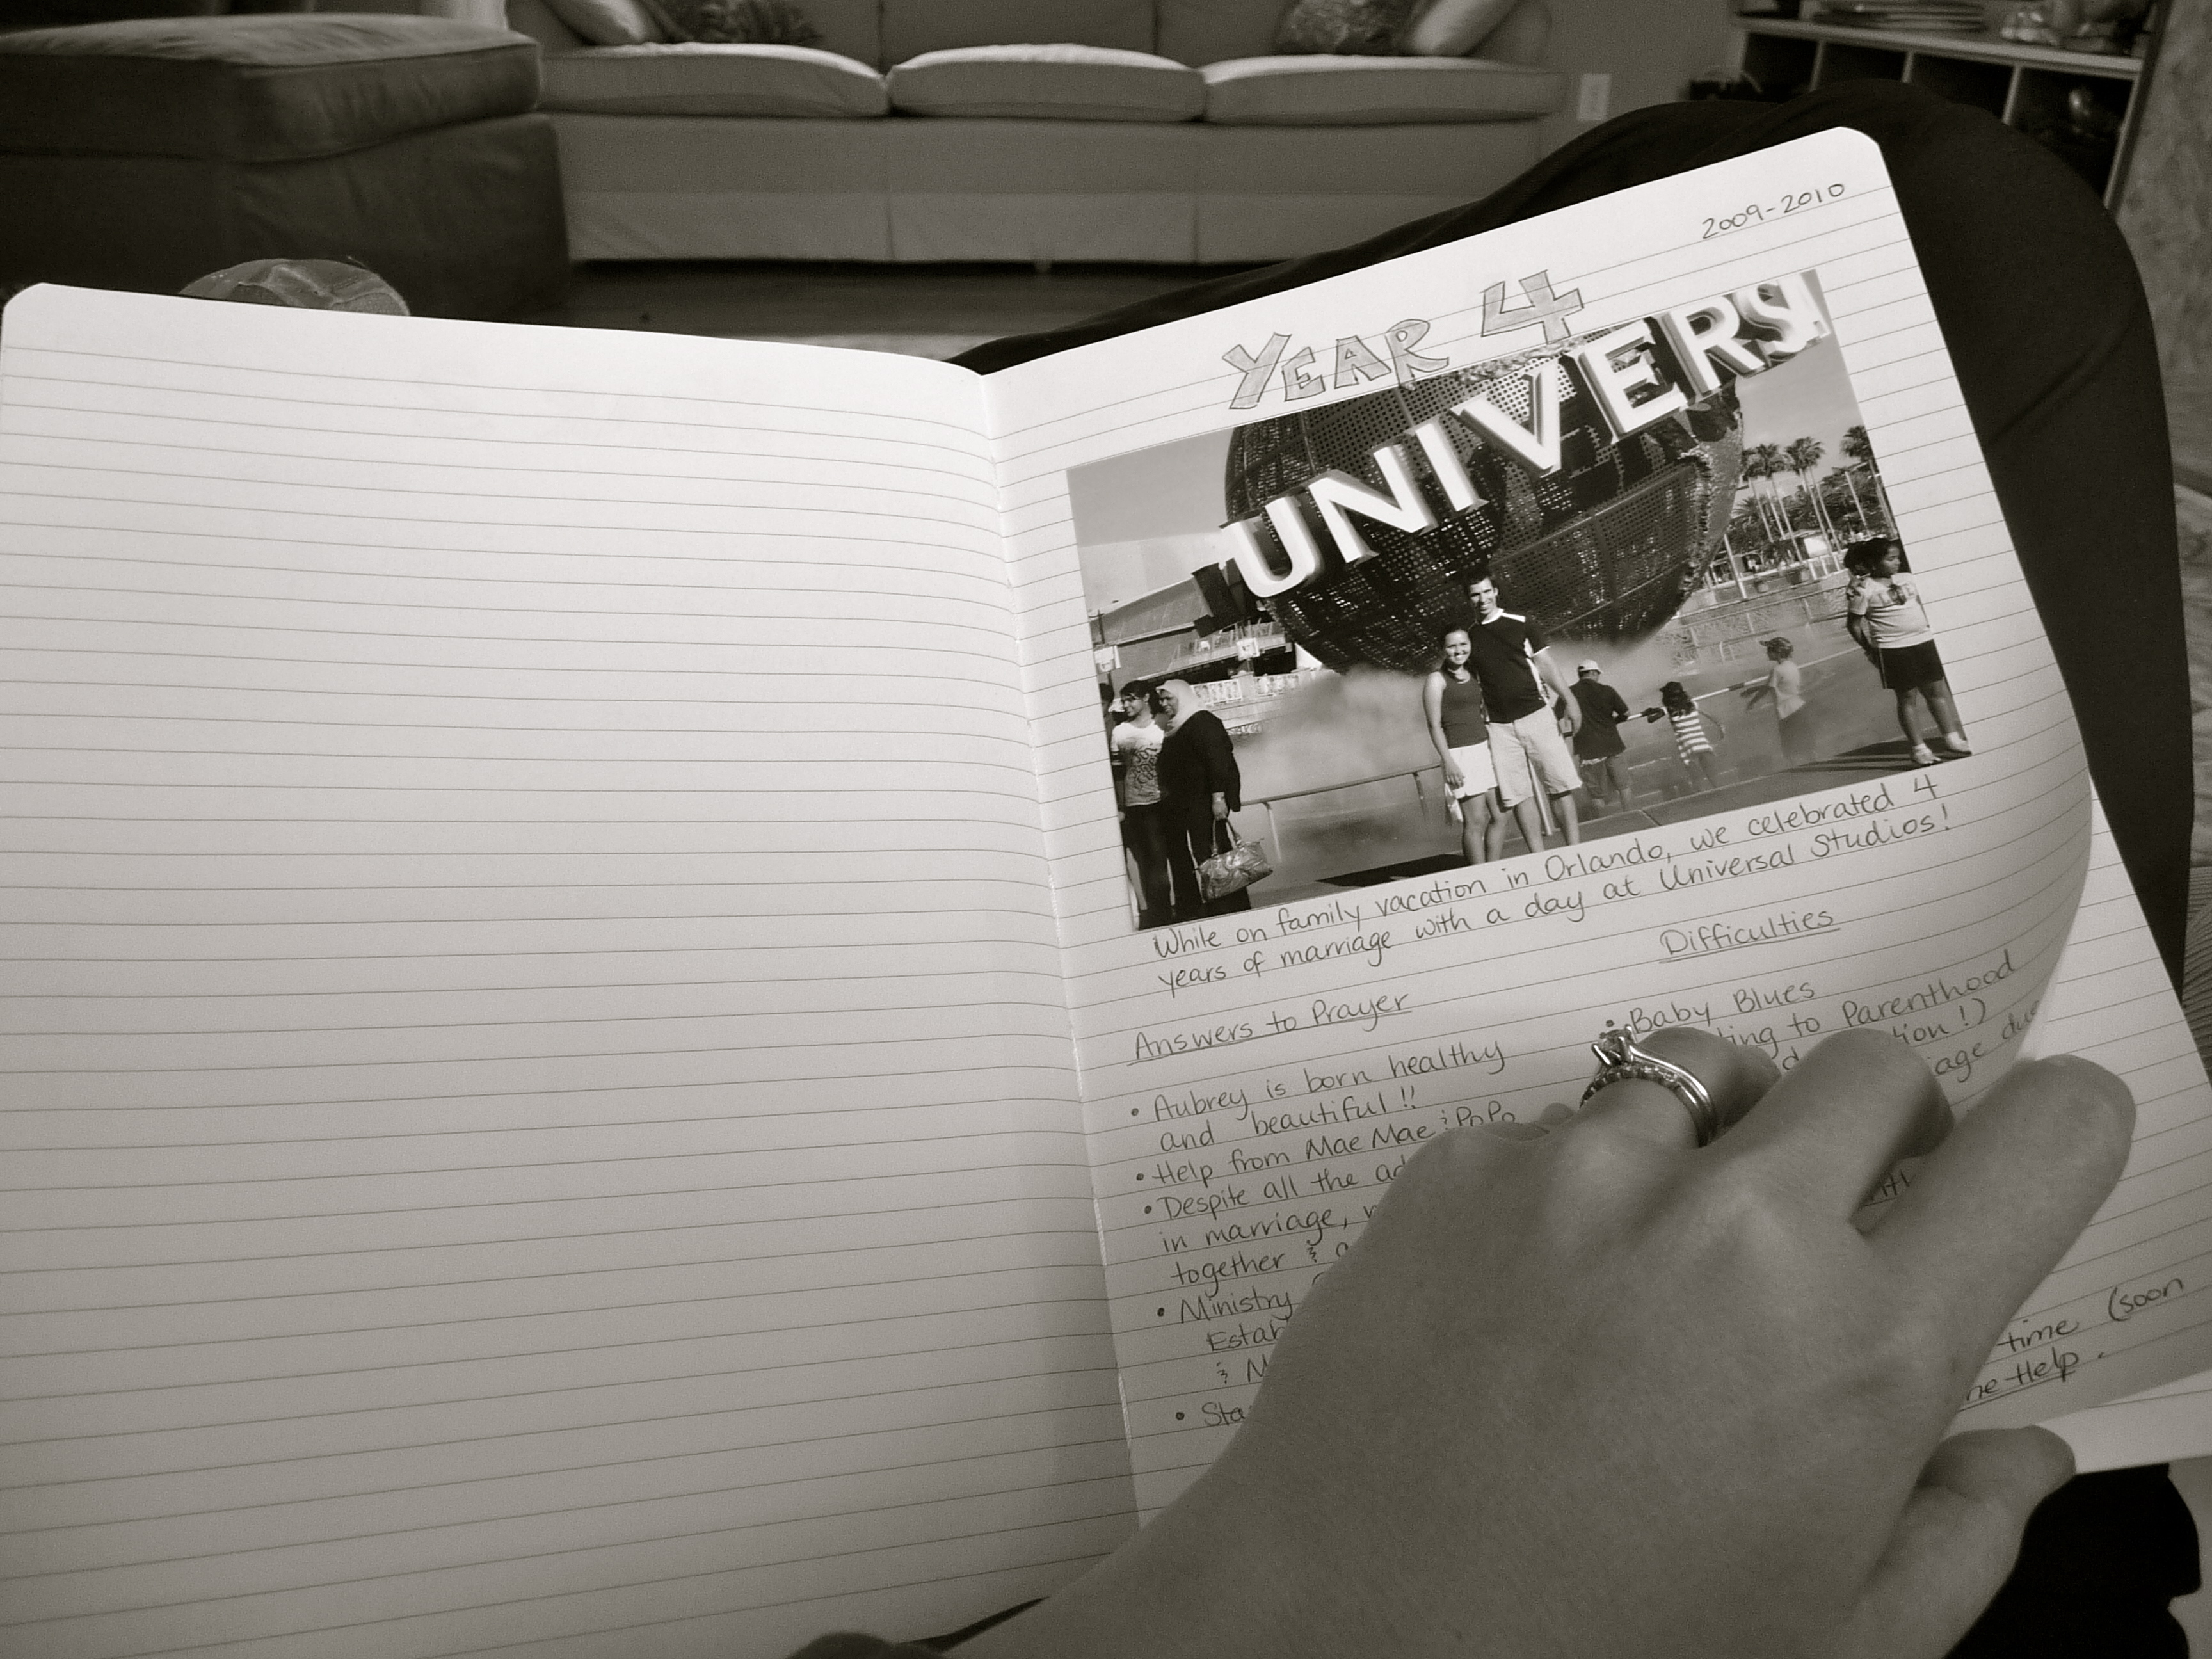 2009-2010
YEAR 4
UNIVERS
While on family vacation in Orlando, we celebrated 4
years of marriage with a day at Universal Studios!
Answers to Prayer
• Aubrey is born healthy
and beautiful!!
• Help from Mae Mae & PoPo
• Despite all the
in marriage,
together &
• Ministry
&
•
Difficulties
• Baby Blues
to Parenthood
time (soon
Help.